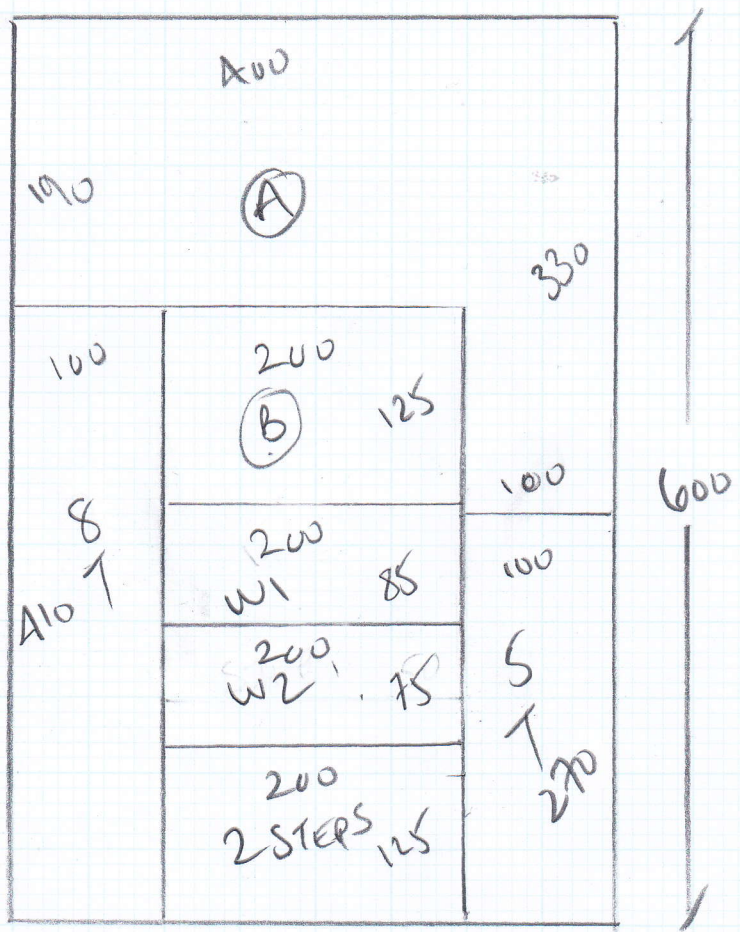 400
190
A
330
330
100
200
B
125
100
600
8
↑
410
200
W1 85
100
200
W2 75
5
↑
270
200
2 STEPS 125